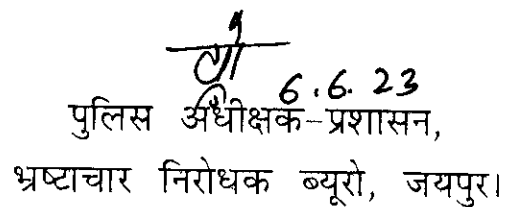 6.6.23
पुलिस अधीक्षक-प्रशासन,
भ्रष्टाचार निरोधक ब्यूरो, जयपुर।